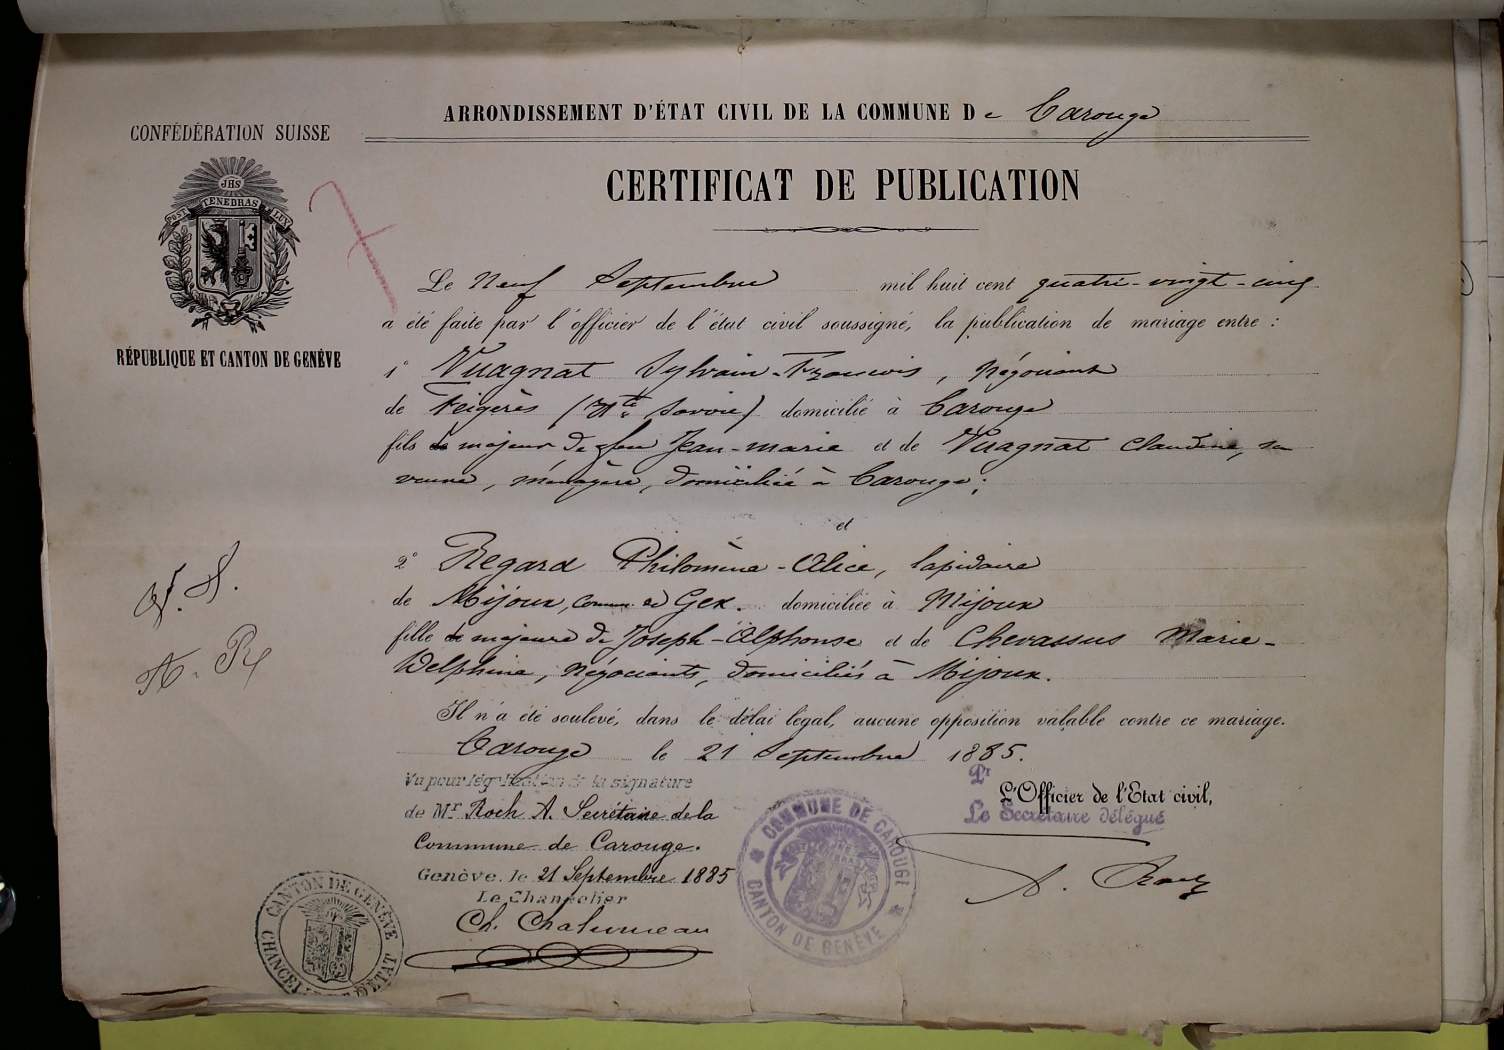 ARRONDISSEMENT D'ÉTAT CIVIL DE LA COMMUNE De Carouge
CONFÉDÉRATION SUISSE
JHS
POST TENEBRAS LUX
RÉPUBLIQUE ET CANTON DE GENÈVE
7
CERTIFICAT DE PUBLICATION
Le Neuf Septembre mil huit cent quatre-vingt-cinq
a été faite par l'officier de l'état civil soussigné, la publication de mariage entre :
1° Vuagnat Sylvain-François, Négociant
de Feigères (Hte Savoie) domicilié à Carouge
fils de majeur de feu Jean-Marie et de Vuagnat Claudine, sa
veuve, ménagère, domiciliée à Carouge;
et
2° Regard Philomène-Alice, lapidaire
de Mijoux, Commune de Gex. domiciliée à Mijoux
fille de majeure de Joseph-Alphonse et de Chevassus Marie-
Delphine, Négociants, domiciliés à Mijoux.
Il n'a été soulevé, dans le délai légal, aucune opposition valable contre ce mariage.
Carouge le 21 Septembre 1885.
V. S.
A. R
Vu pour légalisation de la signature
de Mr Roch A. Secrétaire de la
Commune de Carouge.
Genève, le 21 Septembre 1885
Le Chancelier
Ch. Chalumeau
Pr L'Officier de l'Etat civil,
Le Secrétaire délégué
A. Roch
COMMUNE DE CAROUGE
CANTON DE GENÈVE
CANTON DE GENÈVE
CHANCELLERIE D'ÉTAT